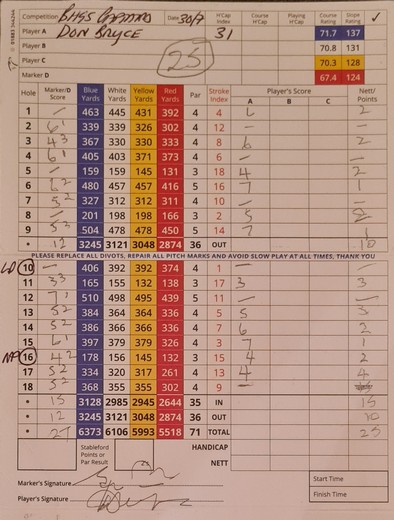 Competition BHGS Date 30/7 H'Cap Index Course H'Cap Playing H'Cap Course Rating Slope Rating ✓
Player A DON BRYCE 31 71.7 137
Player B 70.8 131
Player C 25 70.3 128
Marker D 67.4 124
Hole Marker/D Score Blue Yards White Yards Yellow Yards Red Yards Par Stroke Index Player's Score A B C Nett/Points
1 — 463 445 431 392 4 4 6 2
2 6' 339 339 326 302 4 12 — —
3 4³ 367 330 330 333 4 8 6 2
4 6' 405 403 371 373 4 6 — —
5 — 159 159 145 131 3 18 4 2
6 6² 480 457 457 416 5 16 7 1
7 5² 327 312 312 311 4 10 — —
8 — 201 198 198 166 3 2 5 2
9 5³ 504 478 478 450 5 14 7 1
* 12 3245 3121 3048 2874 36 OUT 10
PLEASE REPLACE ALL DIVOTS, REPAIR ALL PITCH MARKS AND AVOID SLOW PLAY AT ALL TIMES, THANK YOU
LD 10 — 406 392 392 374 4 1 — —
11 3³ 165 155 132 138 3 17 3 3
12 7' 510 498 495 439 5 11 — —
13 5² 384 364 364 336 4 5 5 3
14 5² 386 366 366 336 4 7 6 2
15 6' 397 379 379 326 4 3 7 1
NP 16 4² 178 156 145 132 3 15 4 2
17 5² 334 320 317 261 4 13 4 4
18 5² 368 355 355 302 4 9 —
* 15 3128 2985 2945 2644 35 IN 15
* 12 3245 3121 3048 2874 36 OUT 10
* 27 6373 6106 5993 5518 71 TOTAL 25
Stableford Points or Par Result HANDICAP
NETT
Marker's Signature Start Time
Player's Signature Finish Time